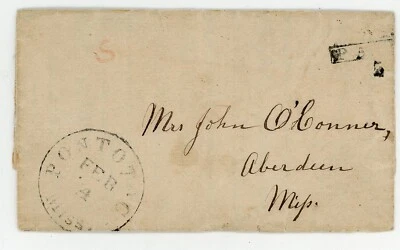 5
PA
5
Mrs John O'Conner,
Aberdeen
Miss.
PONTOTOC
FEB
4
MISS.